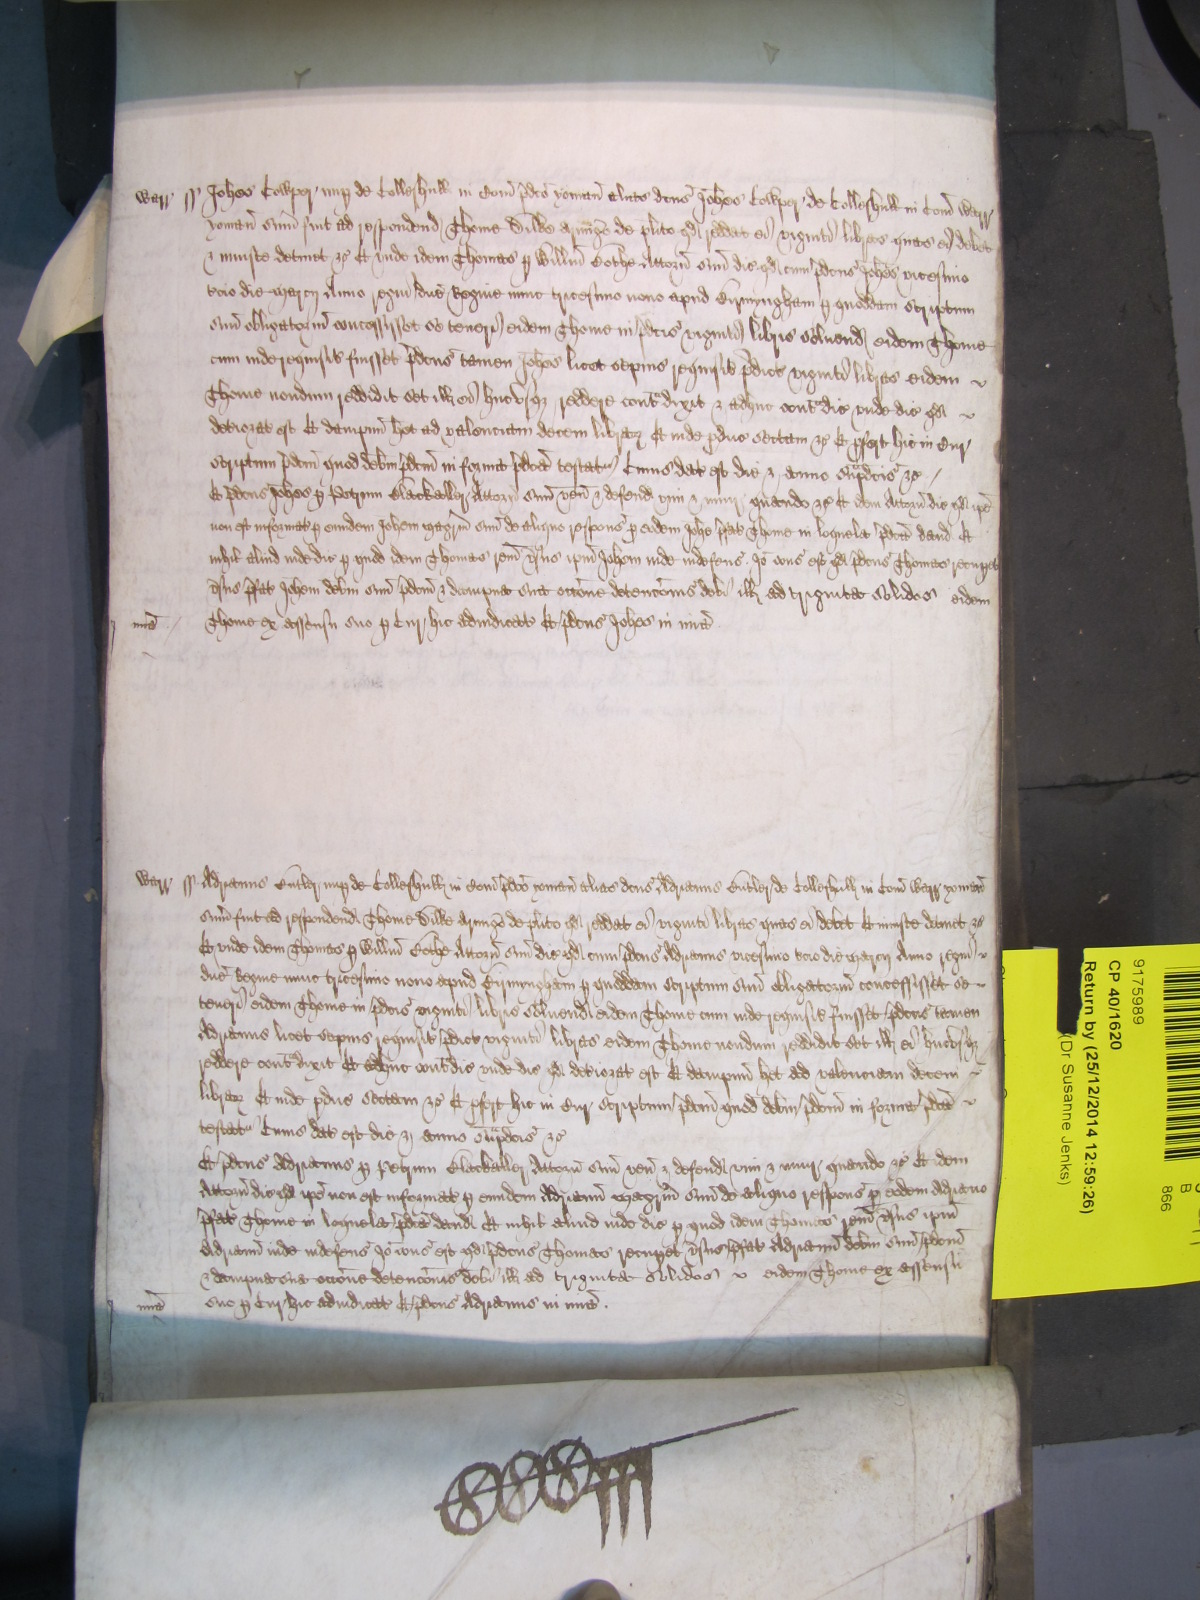 Warr ss Johes Cowper nup de Colleshull in Com pdco yoman alias dcus Johes Cowper de Colleshull in Com Warr
yoman sum fuit ad respondend Thome Wilke de plito qd reddat ei viginti libras quas ei debet
& iniuste detinet &c Et unde idem Thomas p Willm Bothe Attorn suu dic qd cum pdcus Johes vicesimo
tcio die marcii Anno regni dne Regine nunc tricesimo nono apud Birmyngham p quoddam scriptum
suu obligatorium concessisset se teneri eidem Thome in pdcis viginti libris solvend eidem Thome
cum inde requisit fuisset pdcus tamen Johes licet sepius requisit pdict viginti libras eidem
Thome nondum reddidit set ill ei hucusqz reddere contradixit & adhuc contradic unde dic qd
deteriorat est Et dampnu het ad valenciam decem librar Et inde pduc sectam &c Et pfert hic in Cur
scriptum pdcm quod debm pdcm in forma pdca testat Cuius dat est die & anno supadcis &c
Et pdcus Johes p Petrum Blackaller Attorn suu ven & defend vim & iniur quando &c Et idem Attorn dic qd ipe
non est informat p eundem Johem magrum suu de aliquo respons p eodem Johe pfat Thome in loquela pdca dand Et
nihil aliud inde dic p quod idem Thomas reman vsus ipm Johem inde indefens Io cons est qd pdcus Thomas recupet
vsus pfat Johem debm suu pdcm & dampna sua occone detencionis debi ill ad triginta solidos eidem
mia Thome ex assensu suo p Cur hic adiudicat Et pdcus Johes in mia
Warr ss Adrianus Butler nup de Colleshull in Com pdco yoman alias dcus Adrianus Butler de Colleshull in Com Warr yoman
sum fuit ad respondend Thome Wilke de plito qd reddat ei viginti libras quas ei debet Et iniuste detinet &c
Et unde idem Thomas p Willm Bothe Attorn suu dic qd cum pdcus Adrianus vicesimo tcio die marcii Anno regni
dne Regine nunc tricesimo nono apud Birmingham p quoddam scriptum suu obligatorium concessisset se
teneri eidem Thome in pdcis viginti libris solvend eidem Thome cum inde requisit fuisset pdcus tamen
Adrianus licet sepius requisit pdict viginti libras eidem Thome nondum reddidit set ill ei hucusqz
reddere contradixit Et adhuc contradic unde dic qd deteriorat est Et dampnu het ad valenciam decem
librar Et inde pduc sectam &c Et pfert hic in Cur scriptum pdcm quod debm pdcm in forma pdca
testat Cuius dat est die & anno supadcis &c
Et pdcus Adrianus p Petrum Blackaller Attorn suu ven & defend vim & iniur quando &c Et idem
Attorn dic qd ipe non est informat p eundem Adrianu magrum suu de aliquo respons p eodem Adriano
pfat Thome in loquela pdca dand Et nihil aliud inde dic p quod idem Thomas reman vsus ipm
Adrianu inde indefens Io cons est qd pdcus Thomas recupet vsus pfat Adrianu debm suu pdcm
& dampna sua occone detencionis debi ill ad triginta solidos eidem Thome ex assensu
mia suo p Cur hic adiudicat Et pdcus Adrianus in mia
9175989
CP 40/1620
Return by (25/12/2014 12:59:26)
(Dr Susanne Jenks)
866